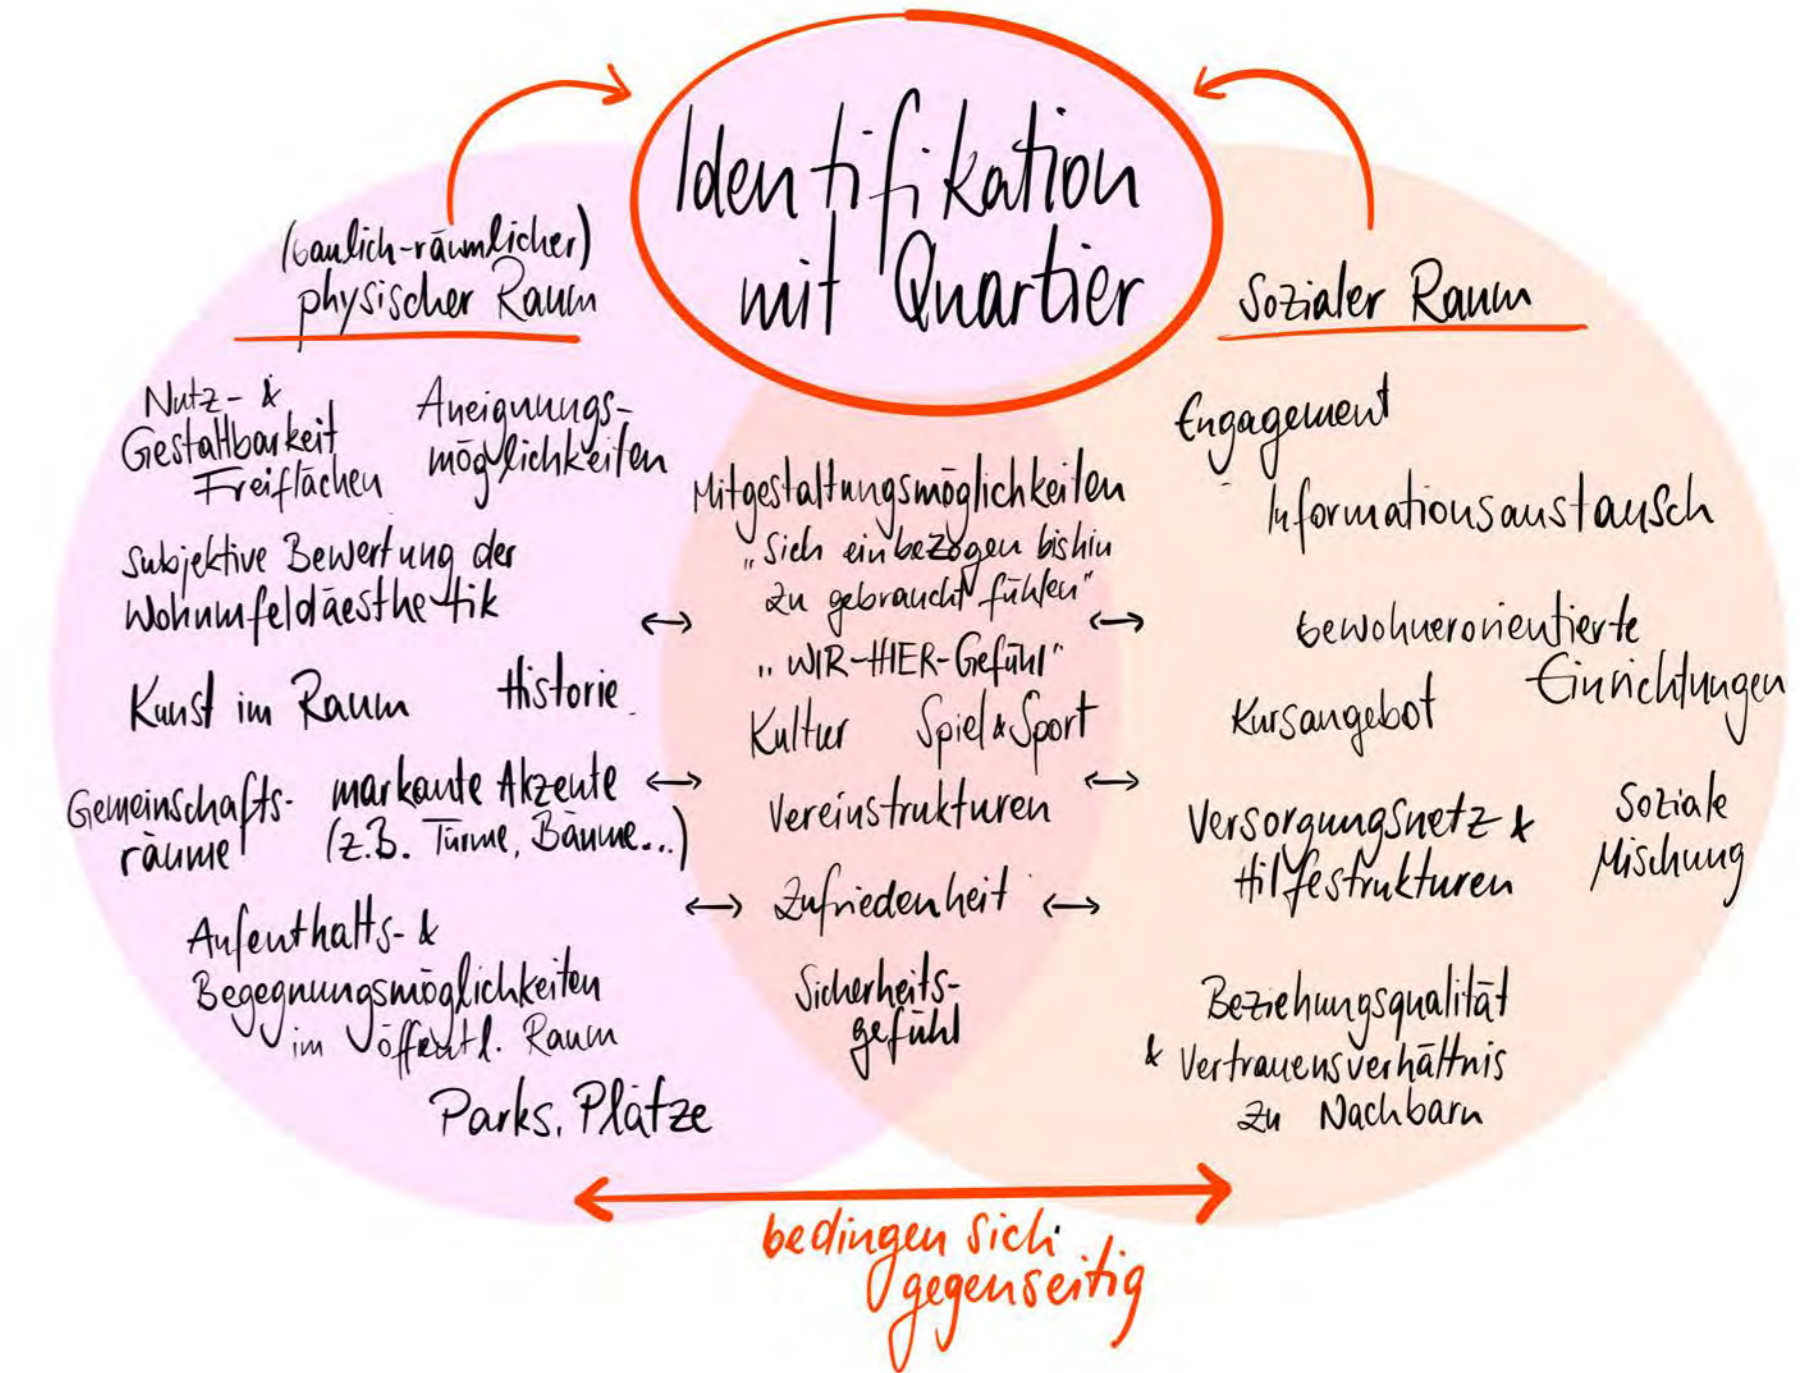 Identifikation
mit Quartier
(baulich-räumlicher)
physischer Raum
Nutz- &
Gestaltbarkeit
Freiflächen
Aneignungs-
möglichkeiten
Subjektive Bewertung der
Wohnumfeldäesthetik
Kunst im Raum
Historie
Gemeinschafts-
räume
markante Akzente
(z.B. Türme, Bäume...)
Aufenthalts- &
Begegnungsmöglichkeiten
im öffentl. Raum
Parks, Plätze
Mitgestaltungsmöglichkeiten
"Sich einbezogen bishin
zu gebraucht fühlen"
"WIR-HIER-Gefühl"
Kultur
Spiel & Sport
Vereinstrukturen
Zufriedenheit
Sicherheits-
gefühl
Sozialer Raum
Engagement
Informationsaustausch
bewohnerorientierte
Einrichtungen
Kursangebot
Versorgungsnetz &
Hilfestrukturen
Soziale
Mischung
Beziehungsqualität
& Vertrauensverhältnis
zu Nachbarn
bedingen sich
gegenseitig